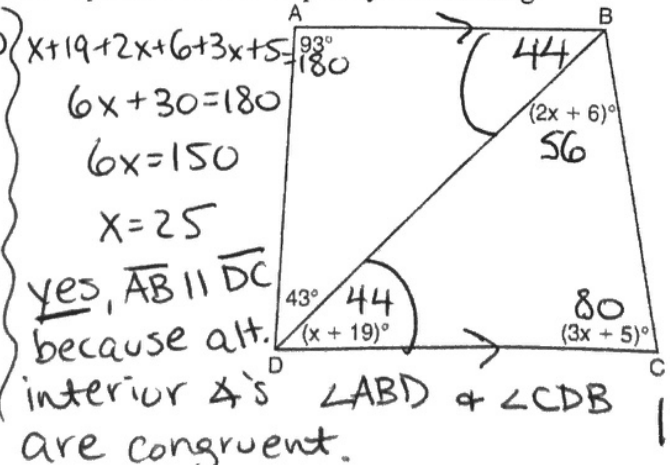 x+19+2x+6+3x+5=180
6x+30=180
6x=150
x=25
yes, AB || DC
because alt.
interior ∡'s ∠ABD & ∠CDB
are congruent.
A
B
93°
44
(2x + 6)°
56
43°
44
(x + 19)°
80
(3x + 5)°
D
C